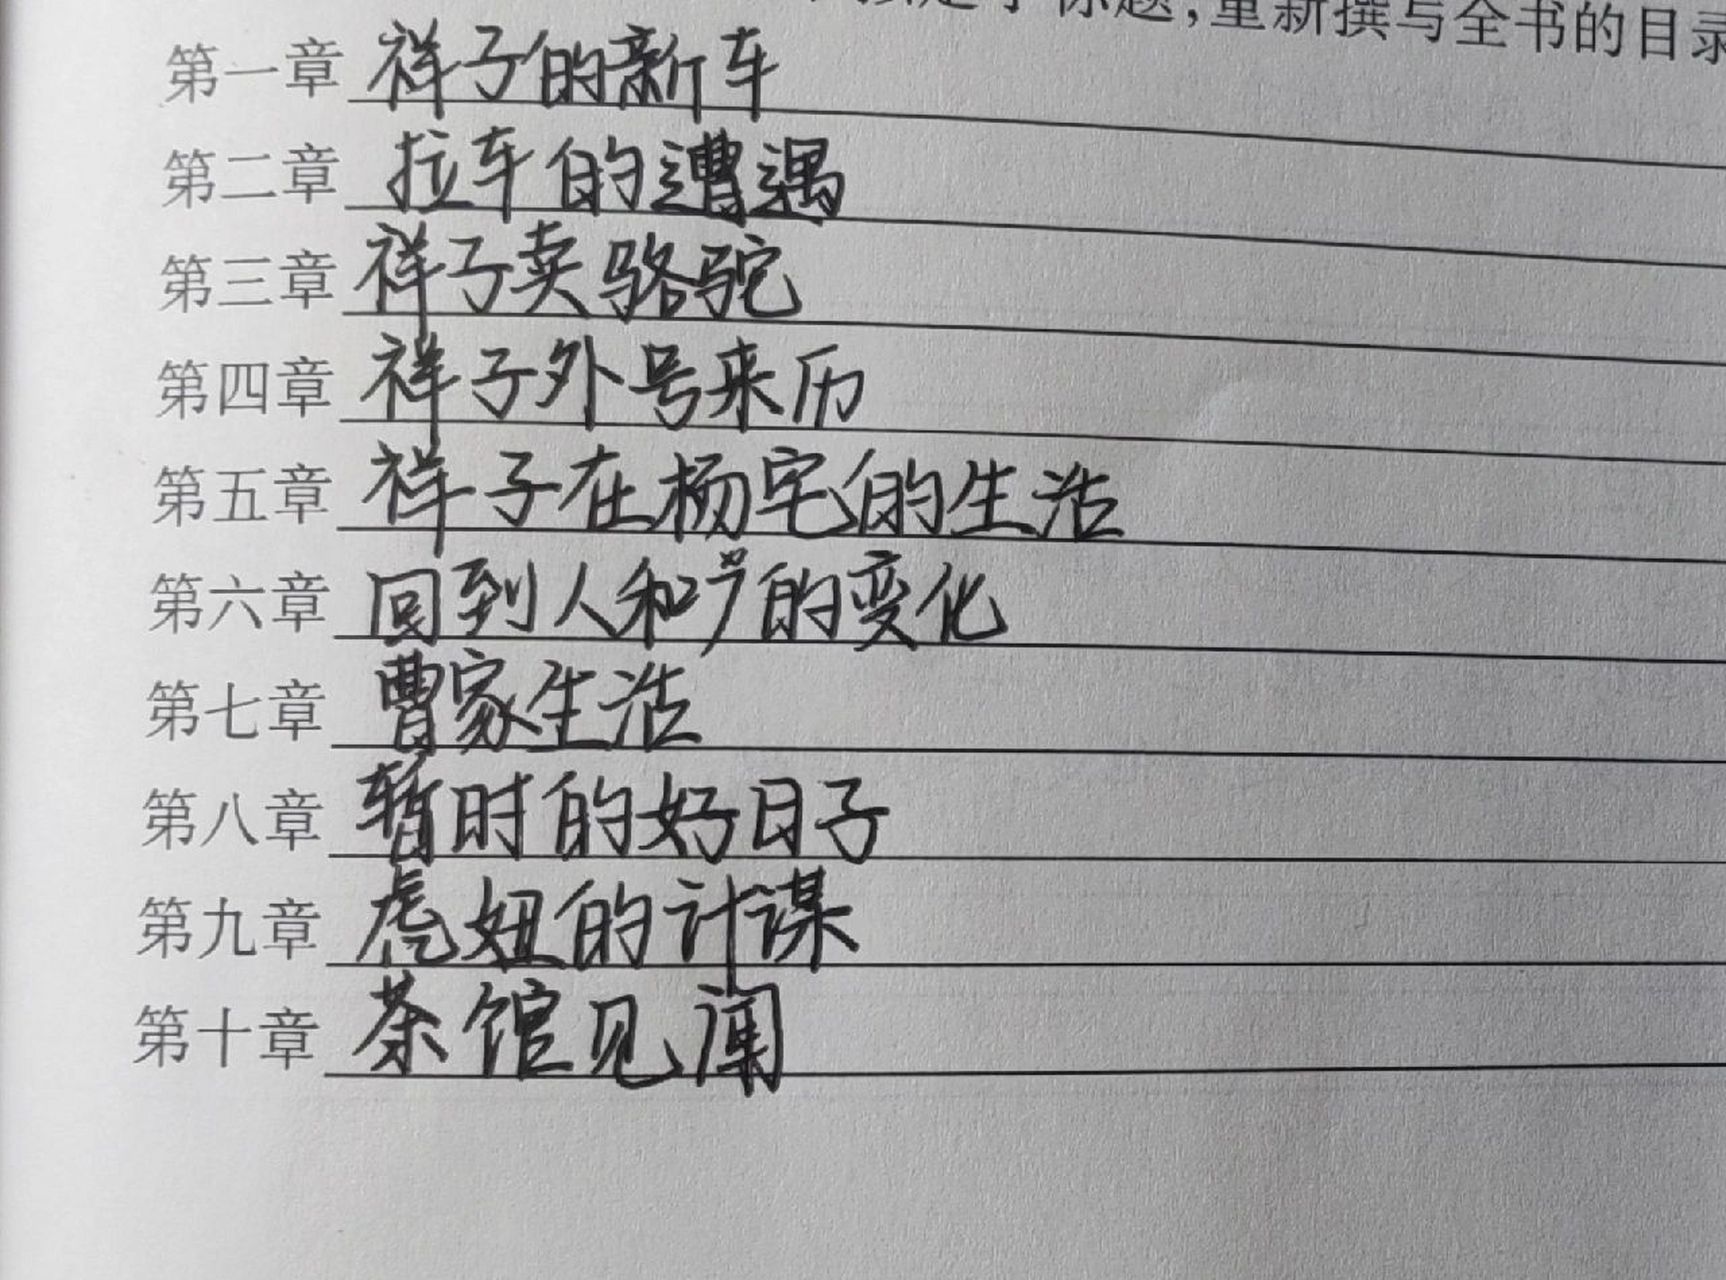 标题,重新撰写全书的目录
第一章 祥子的新车
第二章 拉车的遭遇
第三章 祥子卖骆驼
第四章 祥子外号来历
第五章 祥子在杨宅的生活
第六章 回到人和厂的变化
第七章 曹家生活
第八章 暂时的好日子
第九章 虎妞的计谋
第十章 茶馆见闻